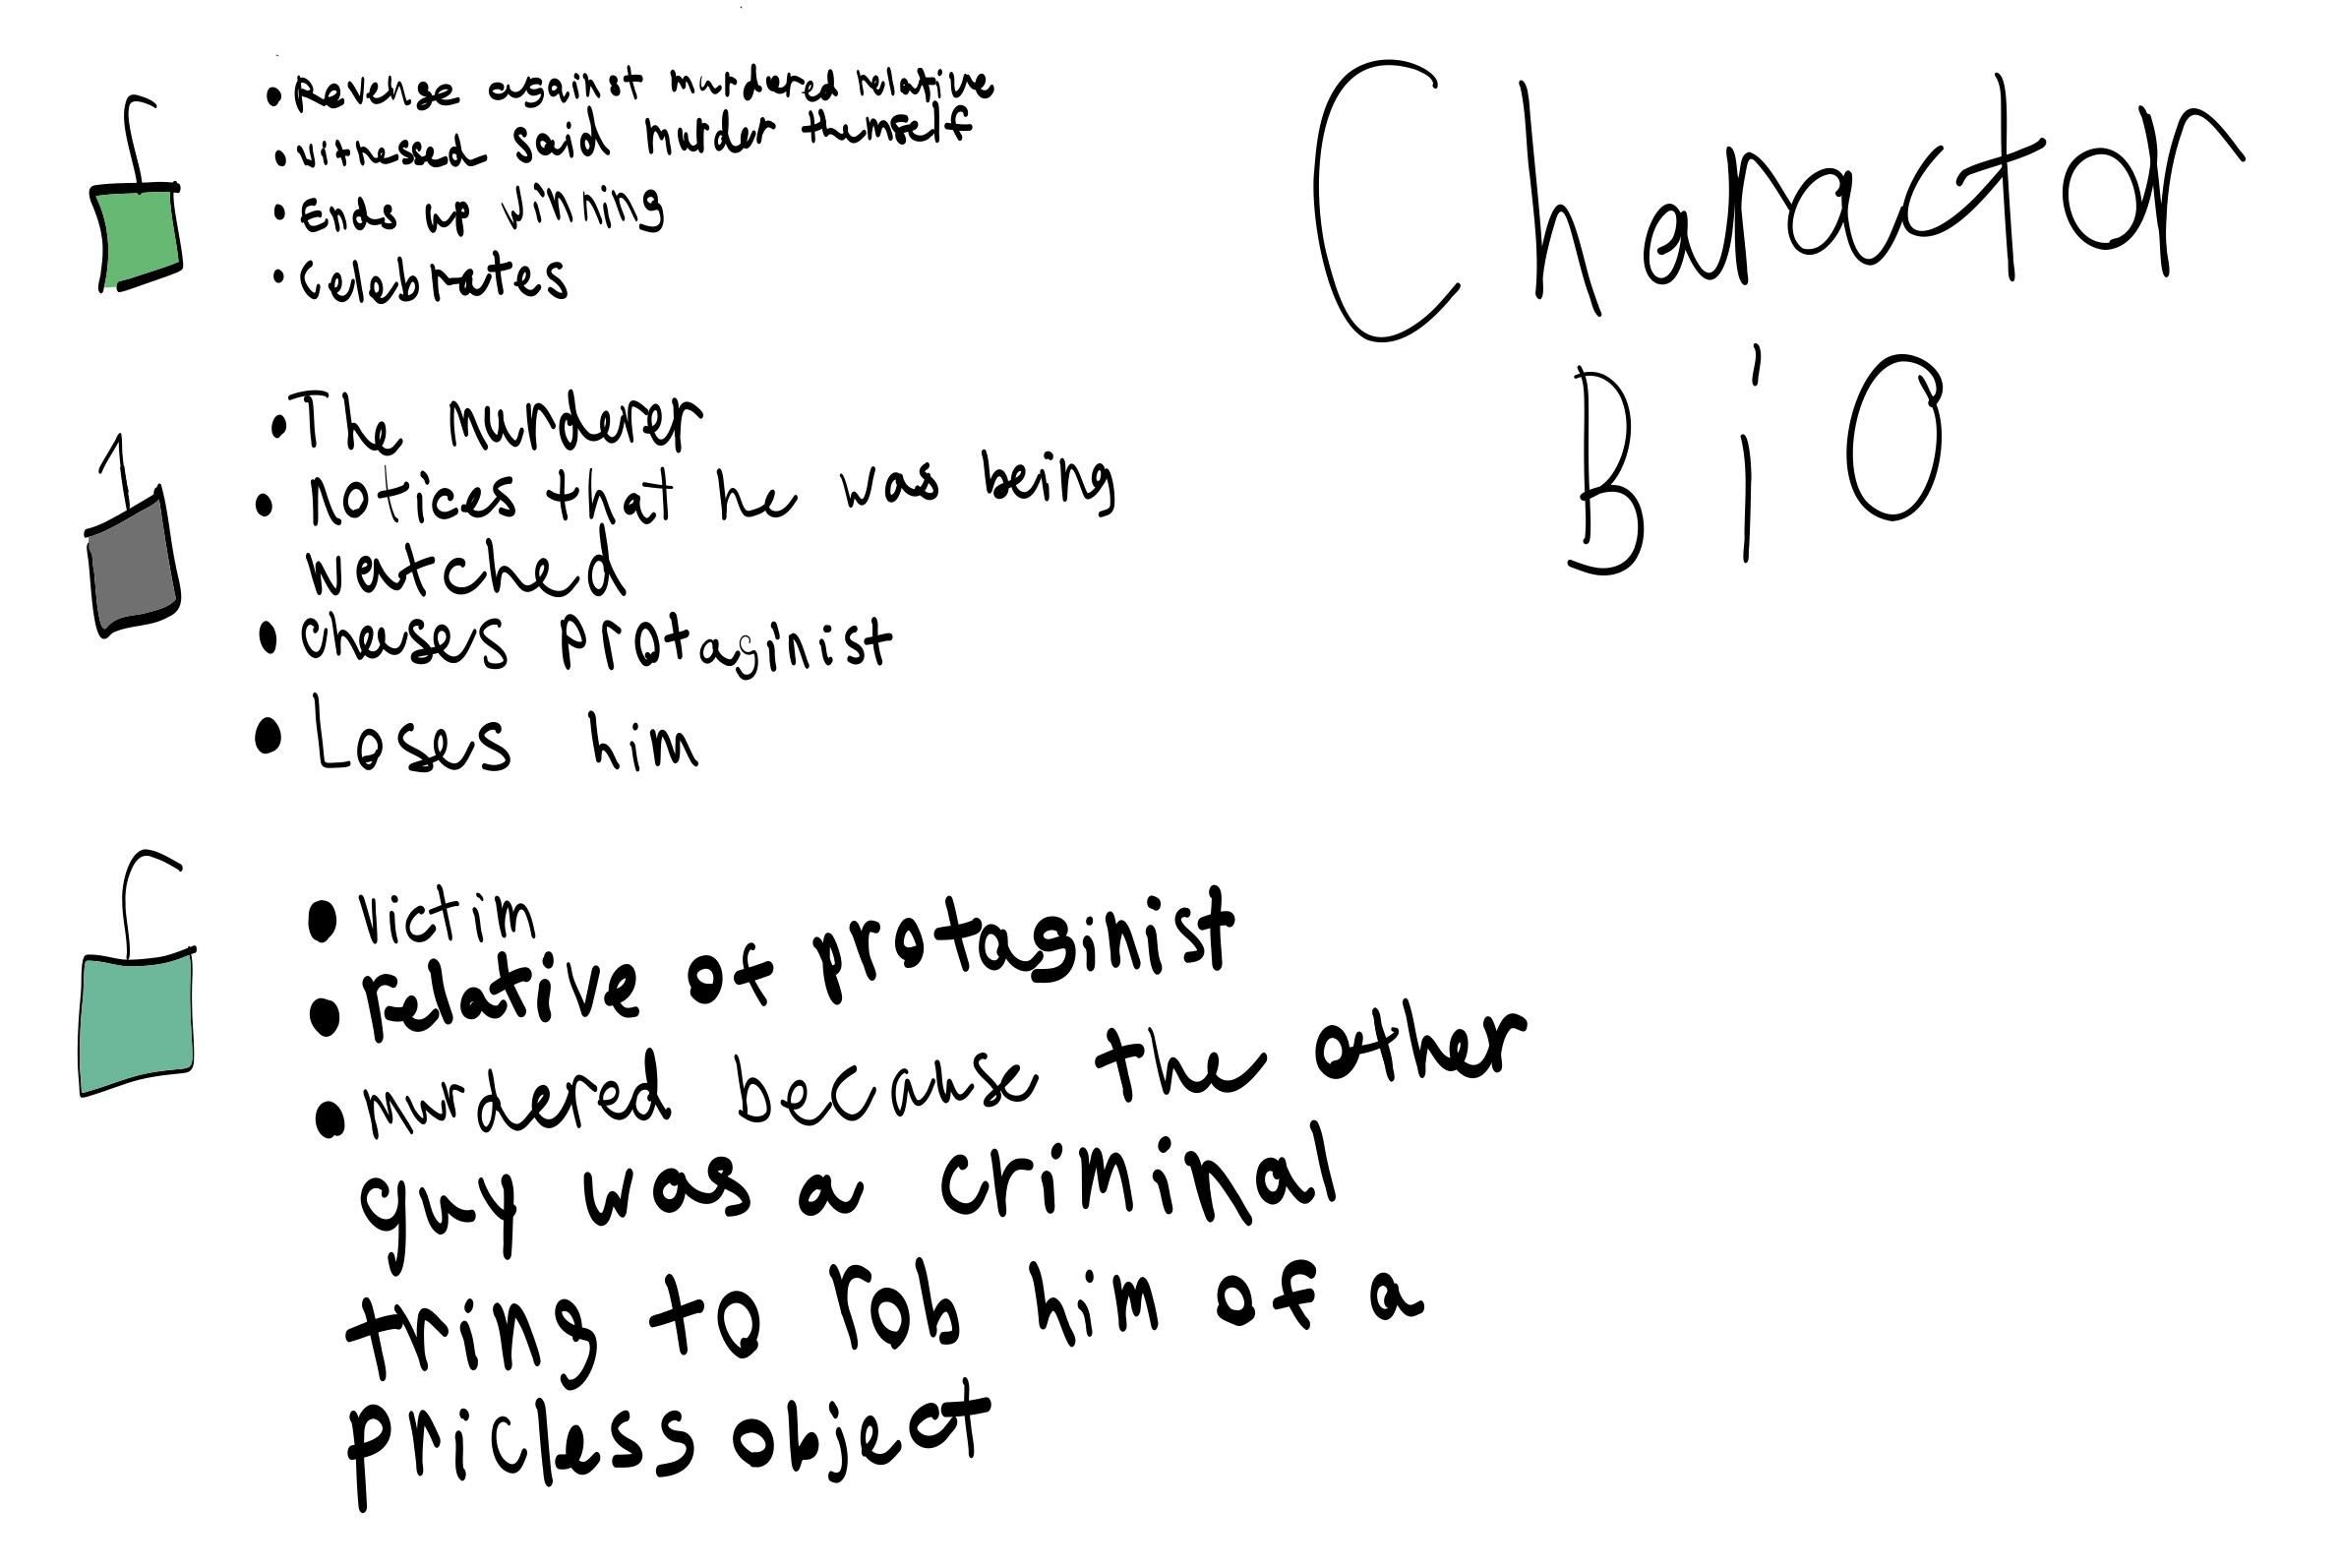 Charactor
Bio
• Revenge against murdered relative
• witnessed said murder themself
• Ends up winning
• Celebrates
• The murderer
• Notices that he was being
watched
• chases protaginist
• Loses him
• Victim
• relative of protaginist
• murdered because the other
guy was a criminal
tring to rob him of a
priceless object